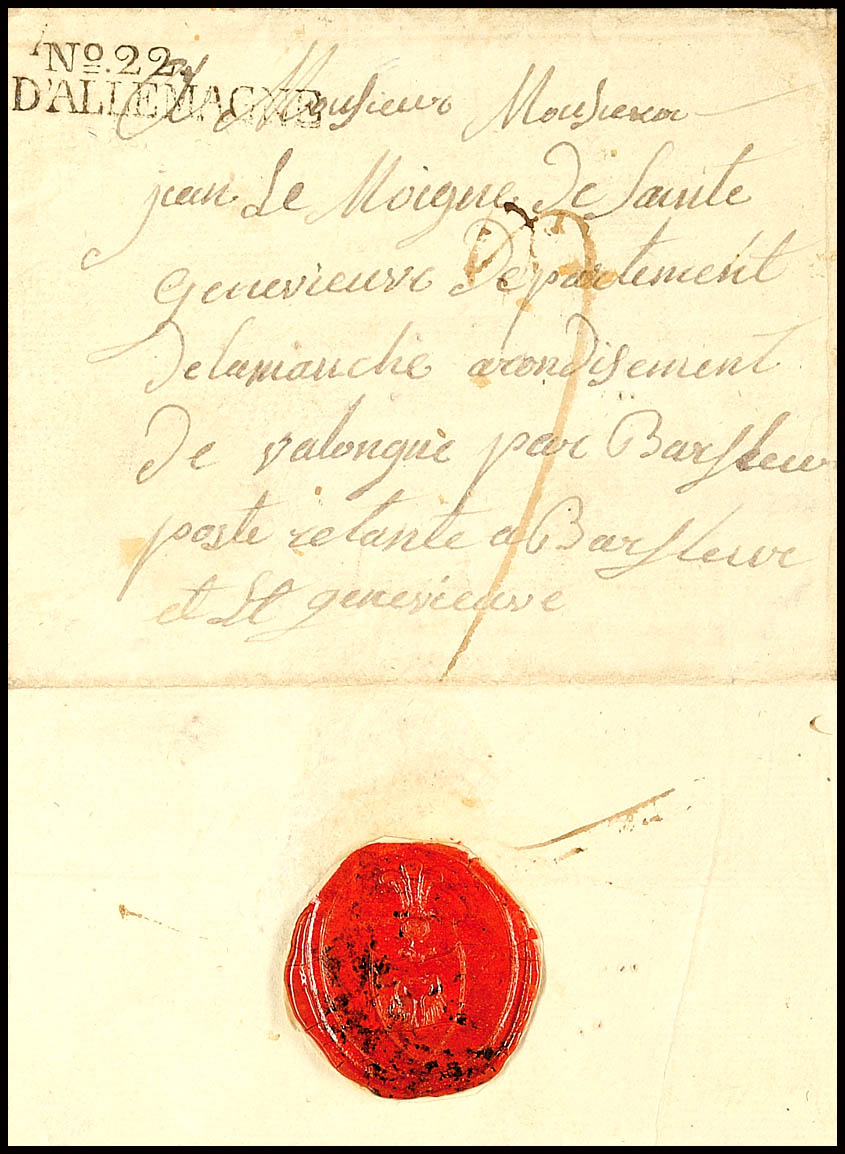 No. 22.
D'ALLEMAGNE
A Monsieur Monsieur
jean Le Moigne de Sainte
genevieuve Departement
delamanche arondisement
de valongne par Barfleur
poste retante a Barfleur
et St genevieuve